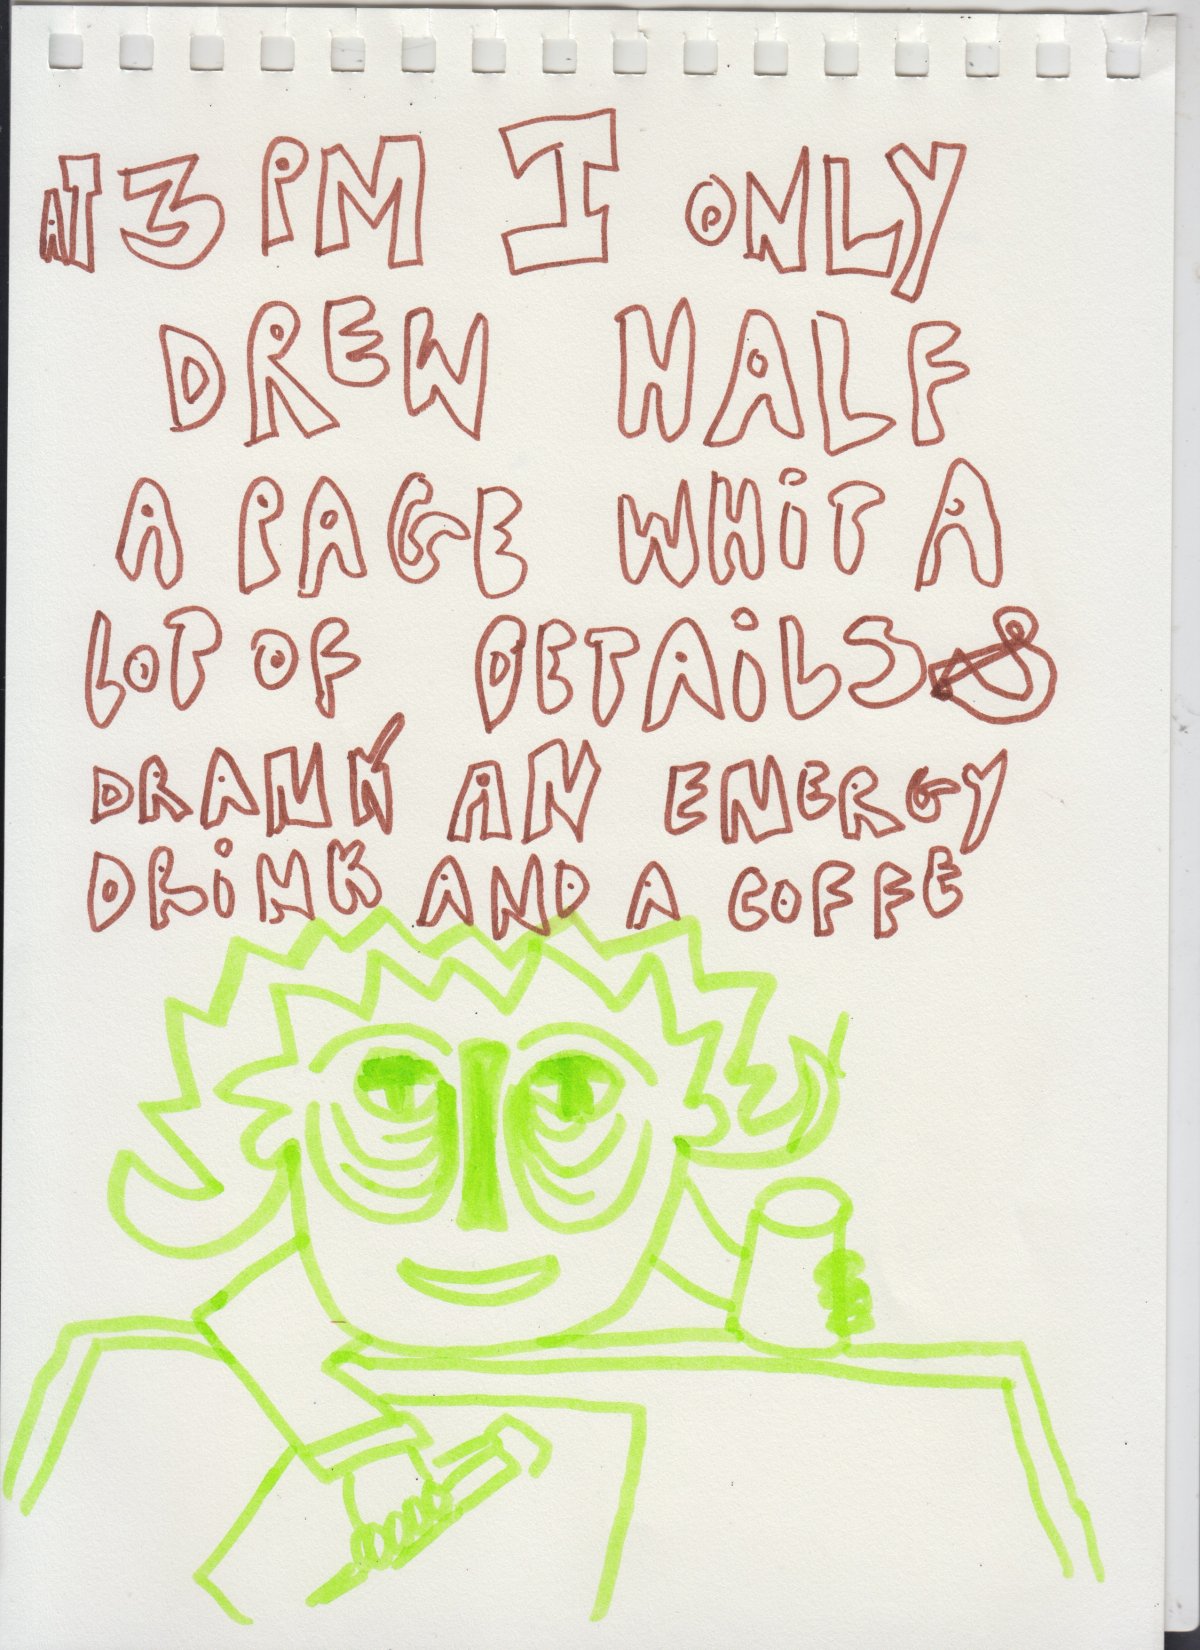 AT 3 PM I ONLY
DREW HALF
A PAGE WHIT A
LOT OF DETAILS &
DRANK AN ENERGY
DRINK AND A COFFE